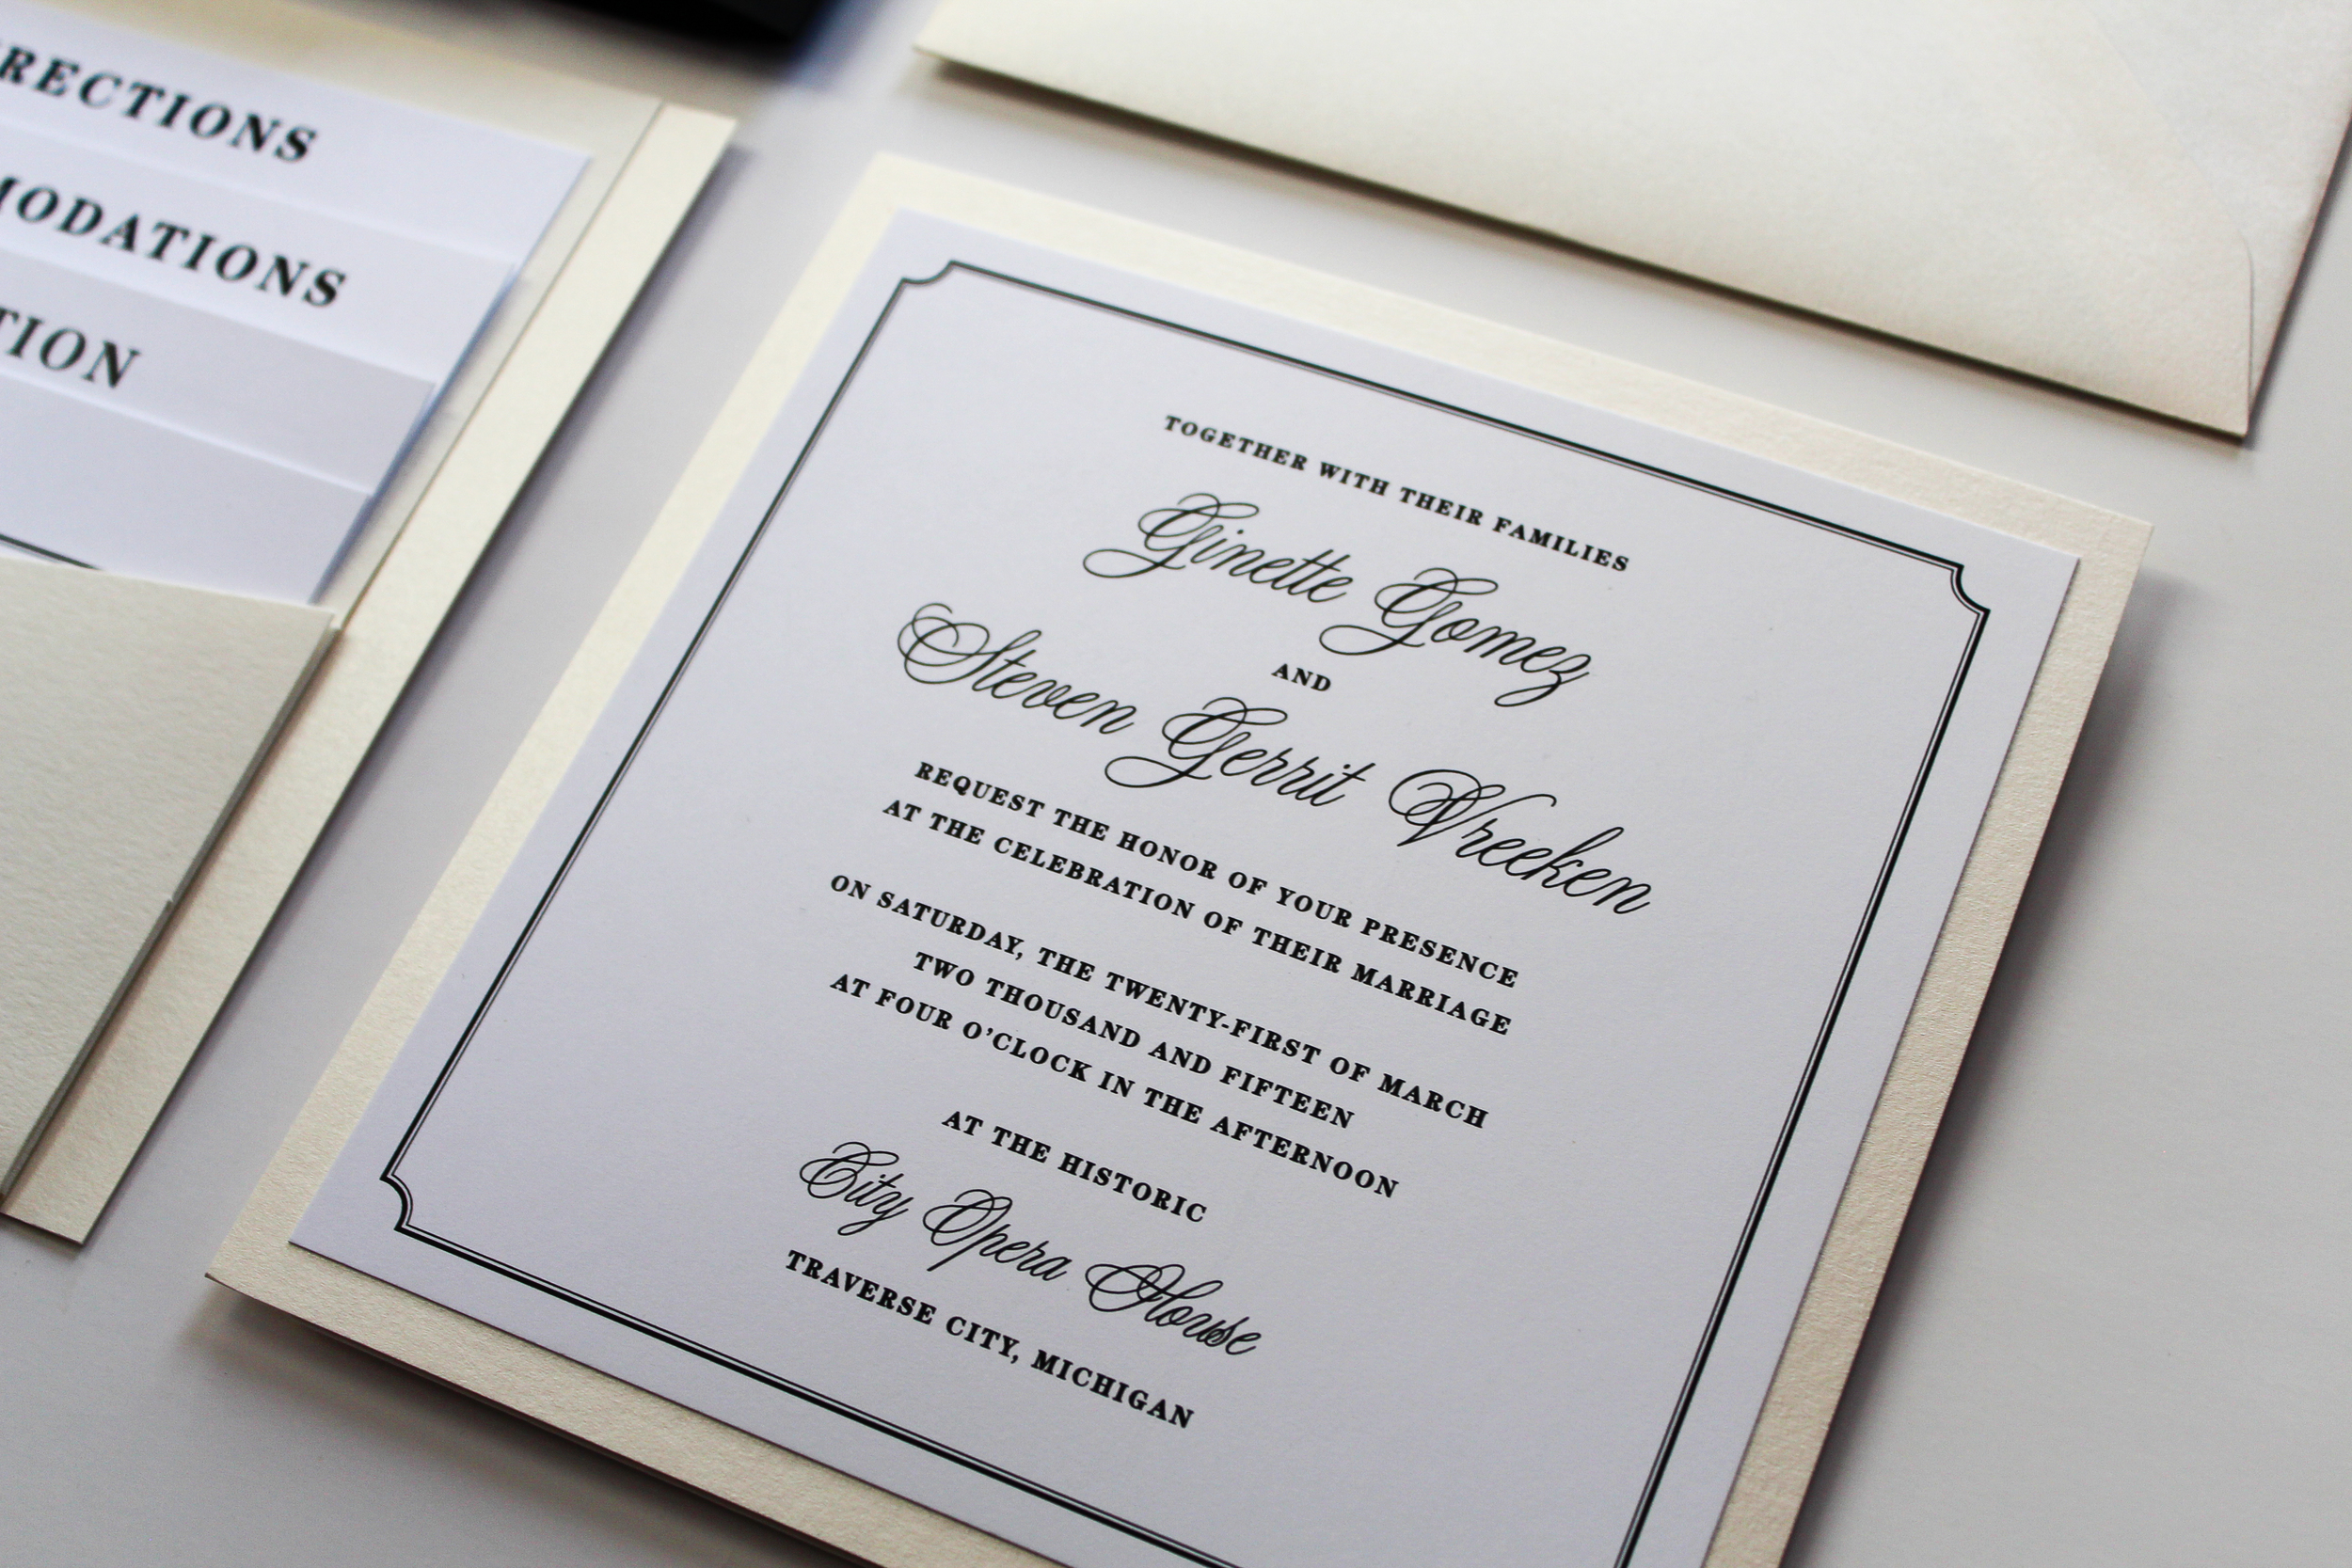 RECTIONS
MODATIONS
TION
TOGETHER WITH THEIR FAMILIES
Ginette Gomez
AND
Steven Gerrit Vreeken
REQUEST THE HONOR OF YOUR PRESENCE
AT THE CELEBRATION OF THEIR MARRIAGE
ON SATURDAY, THE TWENTY-FIRST OF MARCH
TWO THOUSAND AND FIFTEEN
AT FOUR O'CLOCK IN THE AFTERNOON
AT THE HISTORIC
City Opera House
TRAVERSE CITY, MICHIGAN